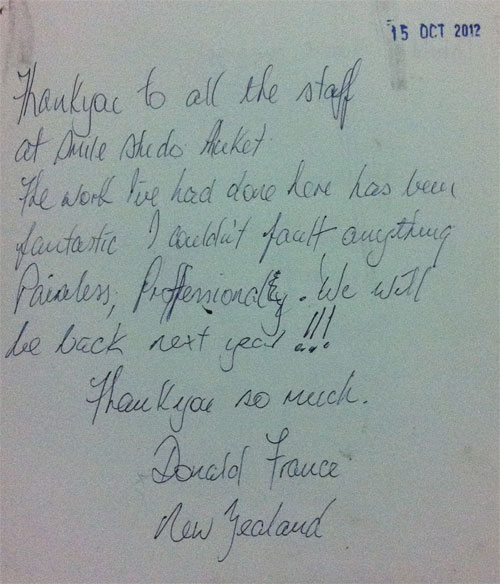 15 OCT 2012
Thankyou to all the staff
at Smile Studo Phuket
The work I've had done here has been
fantastic I couldn't fault anything
Painless, Proffessionally. We will
be back next year !!!
Thankyou so much.
Donald France
New Zealand